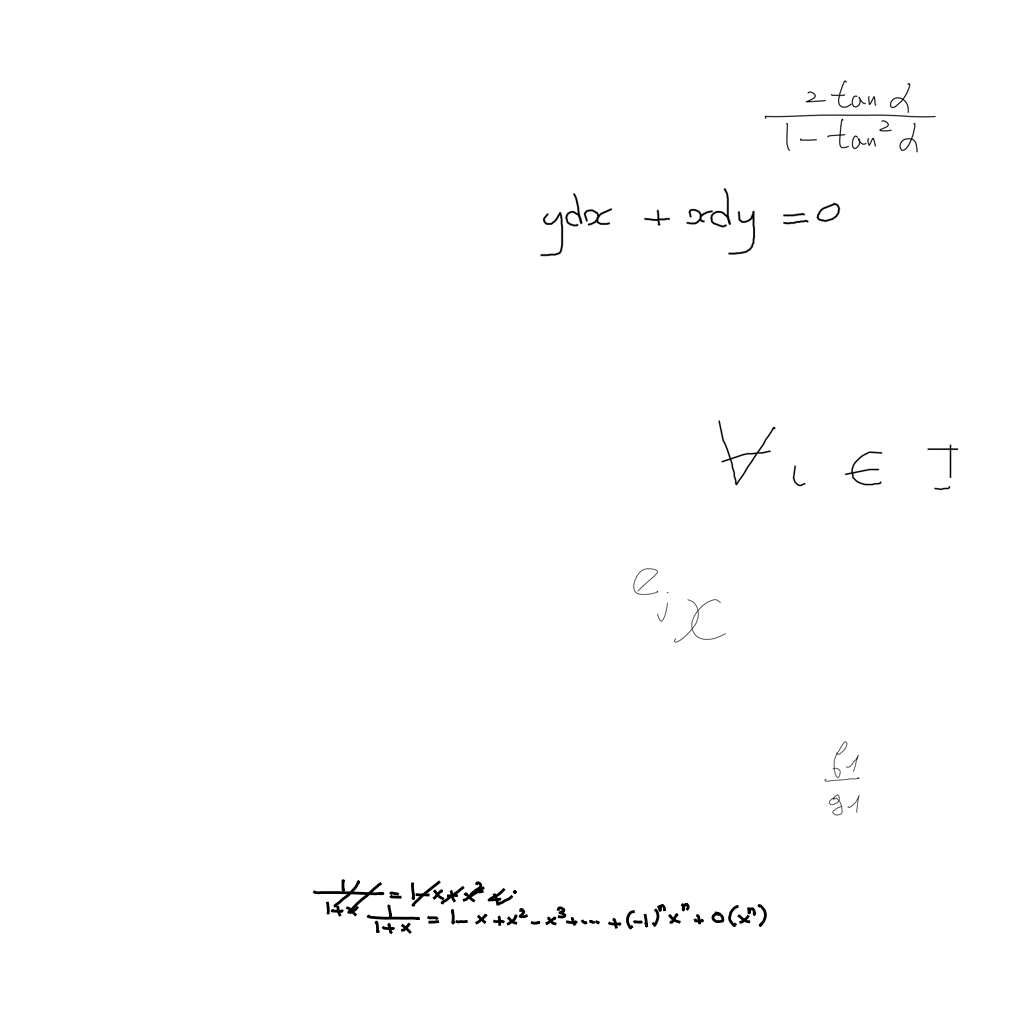 \frac{2 \tan \alpha}{1 - \tan^2 \alpha}
ydx + xdy = 0
∀ i ∈ I
e_j x
\frac{f_1}{g_1}
\frac{1}{1+x} = 1 - x + x^2 - x^3 + \cdots + (-1)^n x^n + o(x^n)